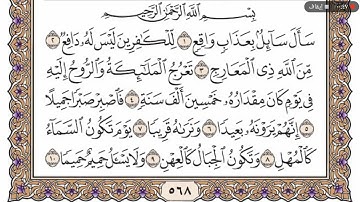 ٠٠:٥٧ إيقاف
بِسْمِ ٱللَّهِ ٱلرَّحْمَٰنِ ٱلرَّحِيمِ
سَأَلَ سَآئِلٌۢ بِعَذَابٍ وَاقِعٍ ١ لِّلْكَٰفِرِينَ لَيْسَ لَهُۥ دَافِعٌ ٢
مِّنَ ٱللَّهِ ذِى ٱلْمَعَارِجِ ٣ تَعْرُجُ ٱلْمَلَٰٓئِكَةُ وَٱلرُّوحُ إِلَيْهِ
فِى يَوْمٍ كَانَ مِقْدَارُهُۥ خَمْسِينَ أَلْفَ سَنَةٍ ٤ فَٱصْبِرْ صَبْرًا جَمِيلًا
٥ إِنَّهُمْ يَرَوْنَهُۥ بَعِيدًا ٦ وَنَرَىٰهُ قَرِيبًا ٧ يَوْمَ تَكُونُ ٱلسَّمَآءُ
كَٱلْمُهْلِ ٨ وَتَكُونُ ٱلْجِبَالُ كَٱلْعِهْنِ ٩ وَلَا يَسْـَٔلُ حَمِيمٌ حَمِيمًا ١٠
٥٦٨